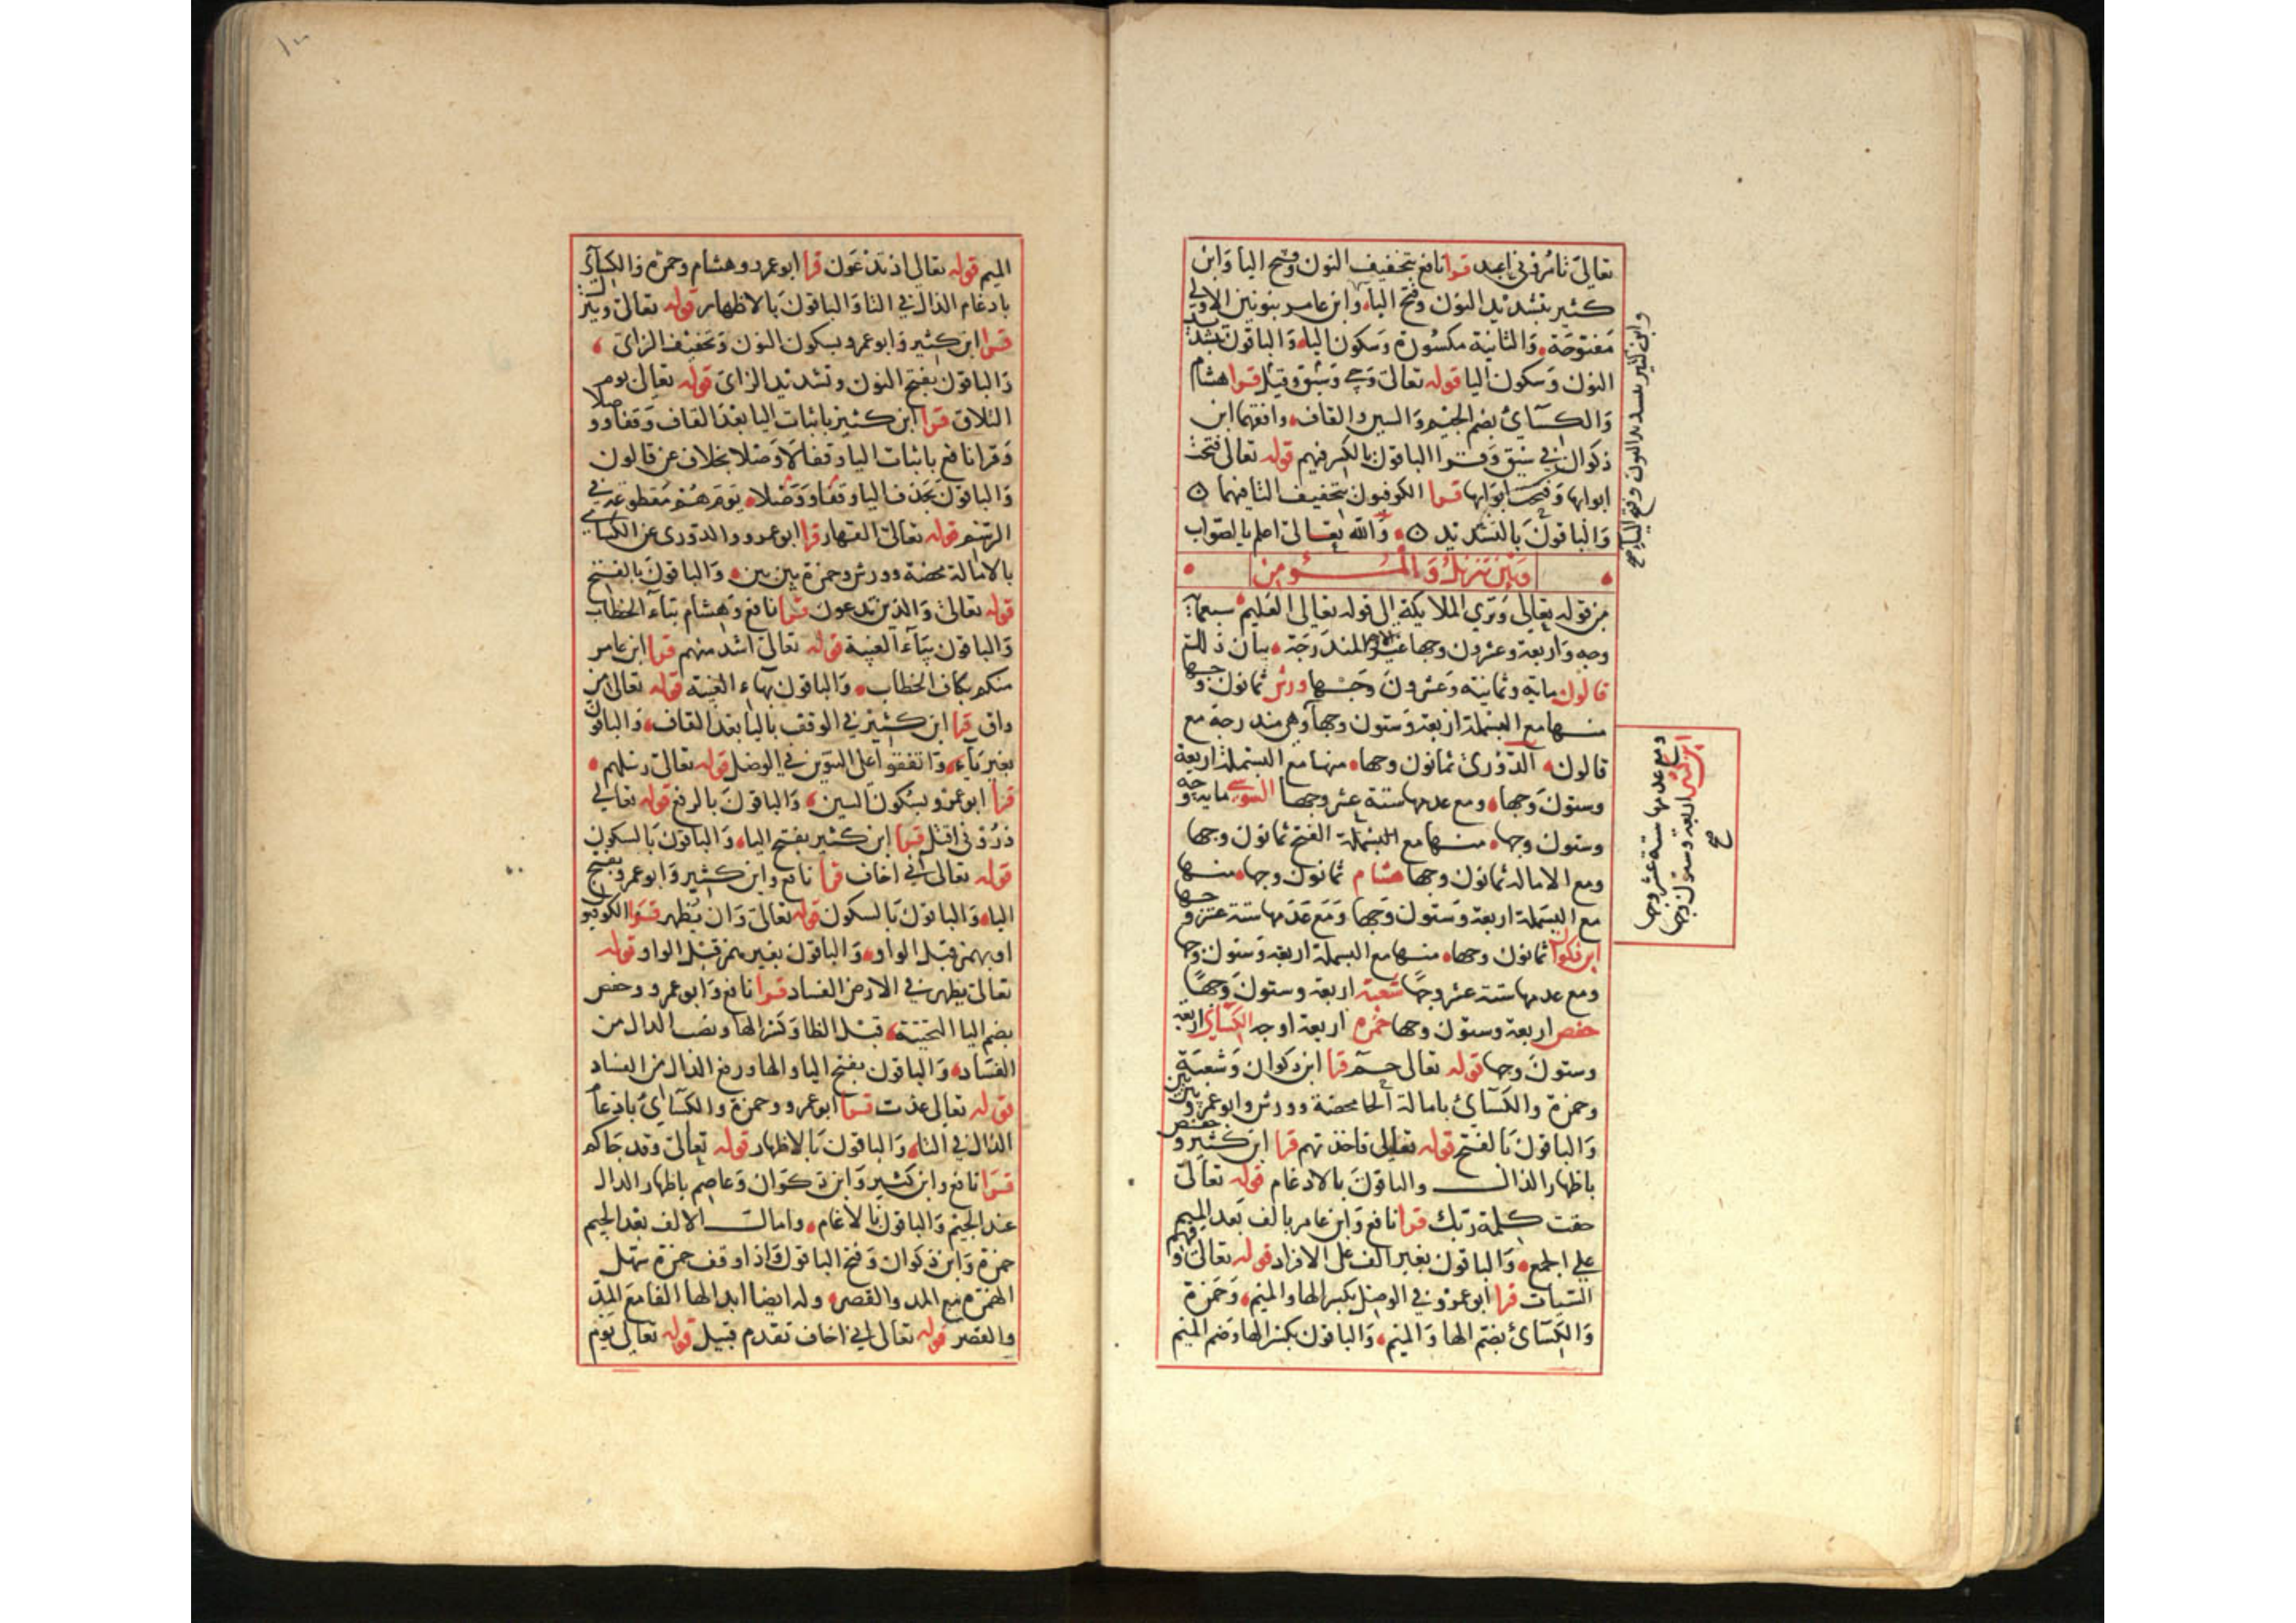 تعالى تامروني اعبد قرا نافع بتخفيف النون وفتح اليا وابن
كثير بتشديد النون وفتح الياء وابن عامر بنونين الاولى
مفتوحة والثانية مكسورة وسكون الياء والباقون بتشديد
النون وسكون اليا قوله تعالى وجيء وسيق وقيل قرا هشام
والكسائي بضم الجيم والسين والقاف وافقهما ابن
ذكوان في سيق وقرا الباقون بالكسر فيهم قوله تعالى فتحت
ابوابها وفتحت ابوابها قرا الكوفيون بتخفيف التا فيهما
والباقون بالتشديد والله تعالى اعلم بالصواب
وابن كثير بتشديد النون وفتح الياء صح
وبين تنزيل والمؤمن
من قوله تعالى وترى الملايكة الى قوله تعالى العليم سبعماية
وجه واربعة وعشرون وجها غير الاوجه المندرجة بيان ذلك
قالون ماية وثمانية وعشرون وجها ورش ثمانون وجها
منها مع البسملة اربعة وستون وجها وهي مندرجة مع
قالون الدوري ثمانون وجها منها مع البسملة اربعة
وستون وجها ومع عدمها ستة عشر وجها السوسي ماية وجه
وستون وجها منها مع البسملة الفتح ثمانون وجها
ومع الامالة ثمانون وجها هشام ثمانون وجها منها
مع البسملة اربعة وستون وجها ومع عدمها ستة عشر وجها
ابن ذكوان ثمانون وجها منها مع البسملة اربعة وستون وجها
ومع عدمها ستة عشر وجها شعبة اربعة وستون وجها
حفص اربعة وستون وجها حمزة اربعة اوجه الكسائي اربعة
وستون وجها قوله تعالى حم قرا ابن ذكوان وشعبة
وحمزة والكسائي بامالة الحا محضة وورش وابو عمرو بين بين
والباقون بالفتح قوله تعالى فاخذتهم قرا ابن كثير وحفص
باظهار الذال والباقون بالادغام قوله تعالى
حقت كلمة ربك قرا نافع وابن عامر بالف بعد الميم
على الجمع والباقون بغير الف على الافراد قوله تعالى وقهم
السيات قرا ابو عمرو في الوصل بكسر الها والميم وحمزة
والكسائي بضم الها والميم والباقون بكسر الها وضم الميم
ومع عدمها ستة عشر وجها
ابن كثير اربعة وستون وجها
صح
الميم قوله تعالى اذ تدعون قرا ابو عمرو وهشام وحمزة والكسائي
بادغام الذال في التا والباقون بالاظهار قوله تعالى وينزل
قرا ابن كثير وابو عمرو بسكون النون وتخفيف الزاي
والباقون بفتح النون وتشديد الزاي قوله تعالى يوم
التلاق قرا ابن كثير باثبات اليا بعد القاف وقفا ووصلا
وقرا نافع باثبات اليا وقفا لا وصلا بخلاف عن قالون
والباقون بحذف اليا وقفا ووصلا يوم هم مقطوعة في
الرسم قوله تعالى القهار قرا ابو عمرو والدوري عن الكسائي
بالامالة محضة وورش وحمزة بين بين والباقون بالفتح
قوله تعالى والذين تدعون قرا نافع وهشام بتاء الخطاب
والباقون بياء الغيبة قوله تعالى اشد منهم قرا ابن عامر
منكم بكاف الخطاب والباقون بهاء الغيبة قوله تعالى من
واق قرا ابن كثير في الوقف باليا بعد القاف والباقون
بغير ياء واتفقوا على التنوين في الوصل قوله تعالى رسلهم
قرا ابو عمرو بسكون السين والباقون بالرفع قوله تعالى
ذروني اقتل قرا ابن كثير بفتح الياء والباقون بالسكون
قوله تعالى اني اخاف قرا نافع وابن كثير وابو عمرو بفتح
الياء والباقون بالسكون قوله تعالى وان يظهر قرا الكوفيون
او بهمز قبل الواو والباقون بغير همز قبل الواو قوله
تعالى يظهر في الارض الفساد قرا نافع وابو عمرو وحفص
بضم اليا التحتية قبل الظا وكسر الها ونصب الدال من
الفساد والباقون بفتح اليا والها ورفع الدال من الفساد
قوله تعالى عذت قرا ابو عمرو وحمزة والكسائي بادغام
الذال في التاء والباقون بالاظهار قوله تعالى وقد جاكم
قرا نافع وابن كثير وابن ذكوان وعاصم باظهار الدال
عند الجيم والباقون بالادغام وامالة الالف بعد الجيم
حمزة وابن ذكوان وفتح الباقون واذا وقف حمزة سهل
الهمزة مع المد والقصر وله ايضا ابدالها الفا مع المد
والقصر قوله تعالى اني اخاف تقدم قبيل قوله تعالى يوم